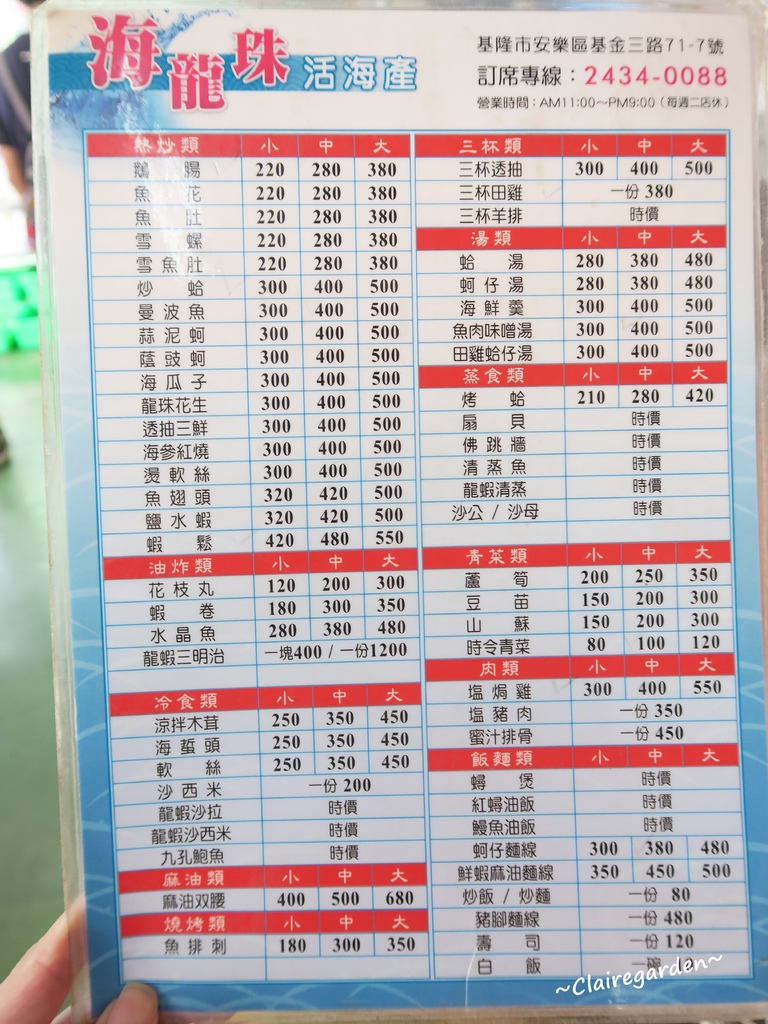 海龍珠 活海產
基隆市安樂區基金三路71-7號
訂席專線：2434-0088
營業時間：AM11:00～PM9:00（每週二店休）
熱炒類 小 中 大
鵝腸 220 280 380
魚花 220 280 380
魚肚 220 280 380
雪螺 220 280 380
雪魚肚 220 280 380
炒蛤 300 400 500
曼波魚 300 400 500
蒜泥蚵 300 400 500
蔭豉蚵 300 400 500
海瓜子 300 400 500
龍珠花生 300 400 500
透抽三鮮 300 400 500
海參紅燒 300 400 500
燙軟絲 300 400 500
魚翅頭 320 420 500
鹽水蝦 320 420 500
蝦鬆 420 480 550
油炸類 小 中 大
花枝丸 120 200 300
蝦卷 180 300 350
水晶魚 280 380 480
龍蝦三明治 一塊400 / 一份1200
冷食類 小 中 大
涼拌木茸 250 350 450
海蜇頭 250 350 450
軟絲 250 350 450
沙西米 一份 200
龍蝦沙拉 時價
龍蝦沙西米 時價
九孔鮑魚 時價
麻油類 小 中 大
麻油双腰 400 500 680
燒烤類 小 中 大
魚排刺 180 300 350
三杯類 小 中 大
三杯透抽 300 400 500
三杯田雞 一份 380
三杯羊排 時價
湯類 小 中 大
蛤湯 280 380 480
蚵仔湯 280 380 480
海鮮羹 300 400 500
魚肉味噌湯 300 400 500
田雞蛤仔湯 300 400 500
蒸食類 小 中 大
烤蛤 210 280 420
扇貝 時價
佛跳牆 時價
清蒸魚 時價
龍蝦清蒸 時價
沙公 / 沙母 時價
青菜類 小 中 大
蘆筍 200 250 350
豆苗 150 200 300
山蘇 150 200 300
時令青菜 80 100 120
肉類 小 中 大
塩焗雞 300 400 550
塩豬肉 一份 350
蜜汁排骨 一份 450
飯麵類 小 中 大
蟳煲 時價
紅蟳油飯 時價
鰻魚油飯 時價
蚵仔麵線 300 380 480
鮮蝦麻油麵線 350 450 500
炒飯 / 炒麵 一份 80
豬腳麵線 一份 480
壽司 一份 120
白飯 一碗
~Clairegarden~